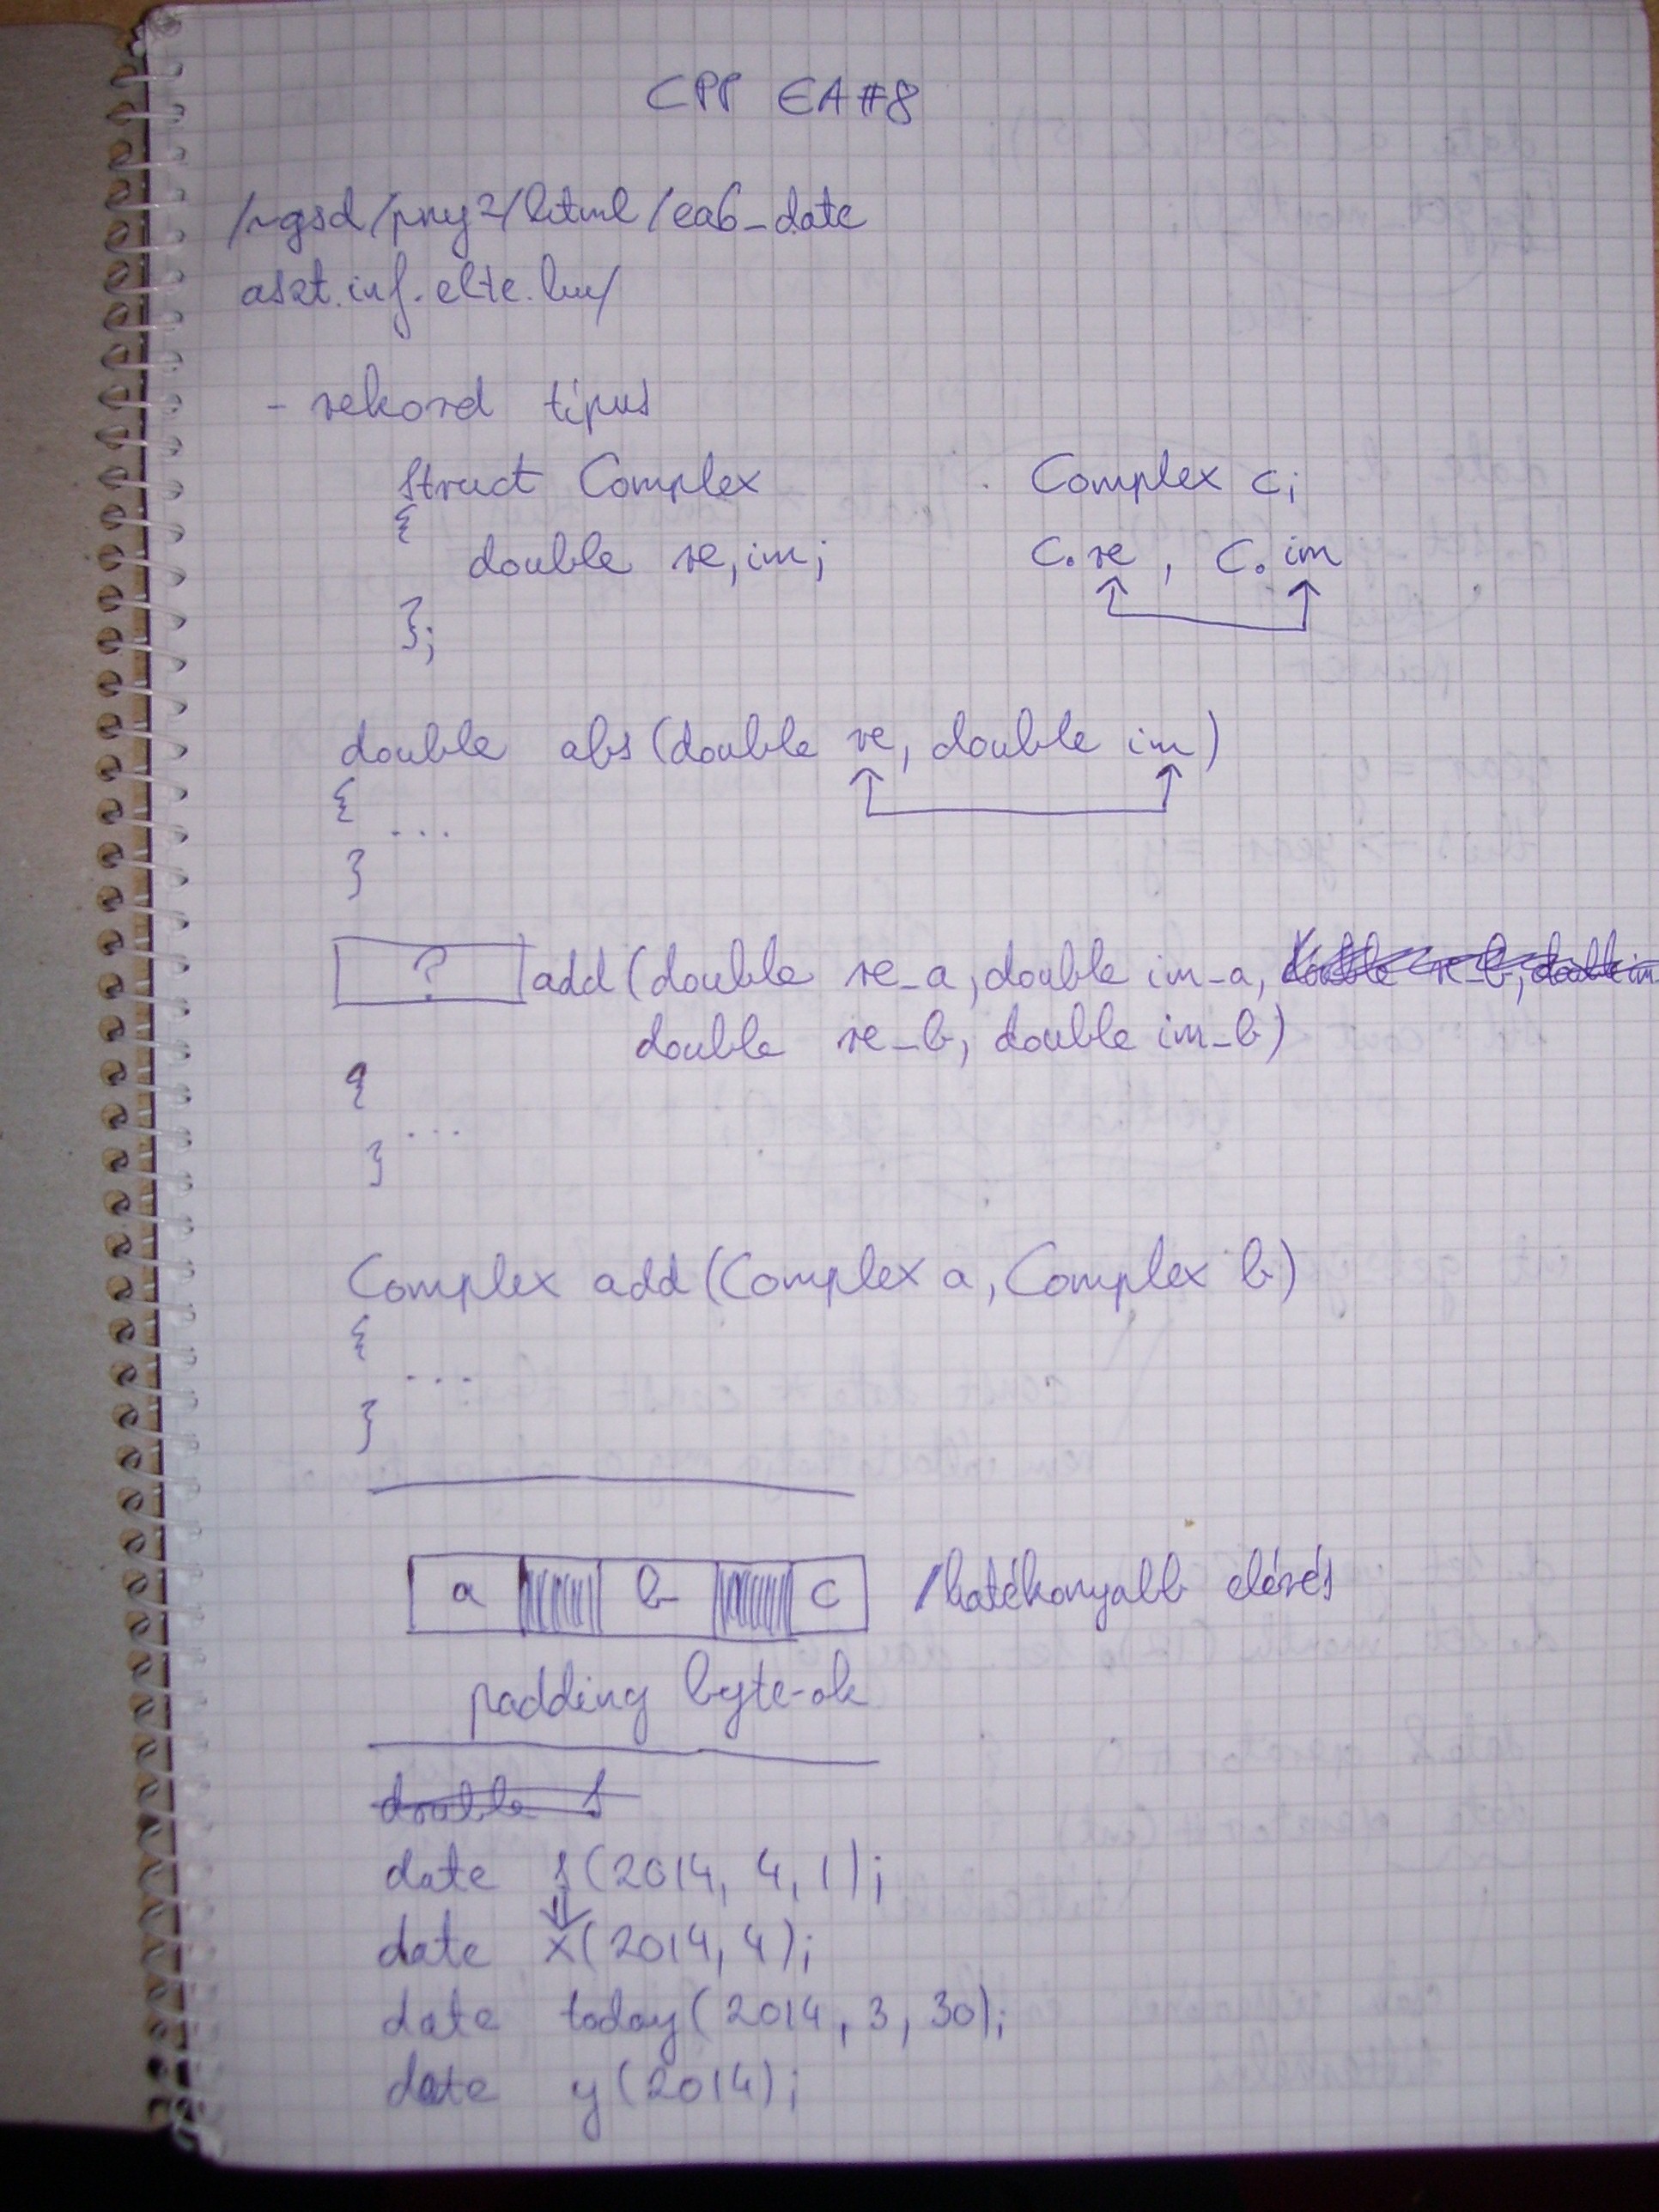 CPP EA#8
/~gsd/pny2/html/ea6_date
aszt.inf.elte.hu/
- rekord típus
struct Complex
{
double re, im;
};
Complex c;
c.re , c.im
double abs(double re, double im)
{
...
}
? add(double re_a, double im_a, double re_b, double im
double re_b, double im_b)
{
...
}
Complex add(Complex a, Complex b)
{
...
}
a b c /hatékonyabb elérés
padding byte-ok
double s
date s(2014, 4, 1);
date x(2014, 4);
date today(2014, 3, 30);
date y(2014);